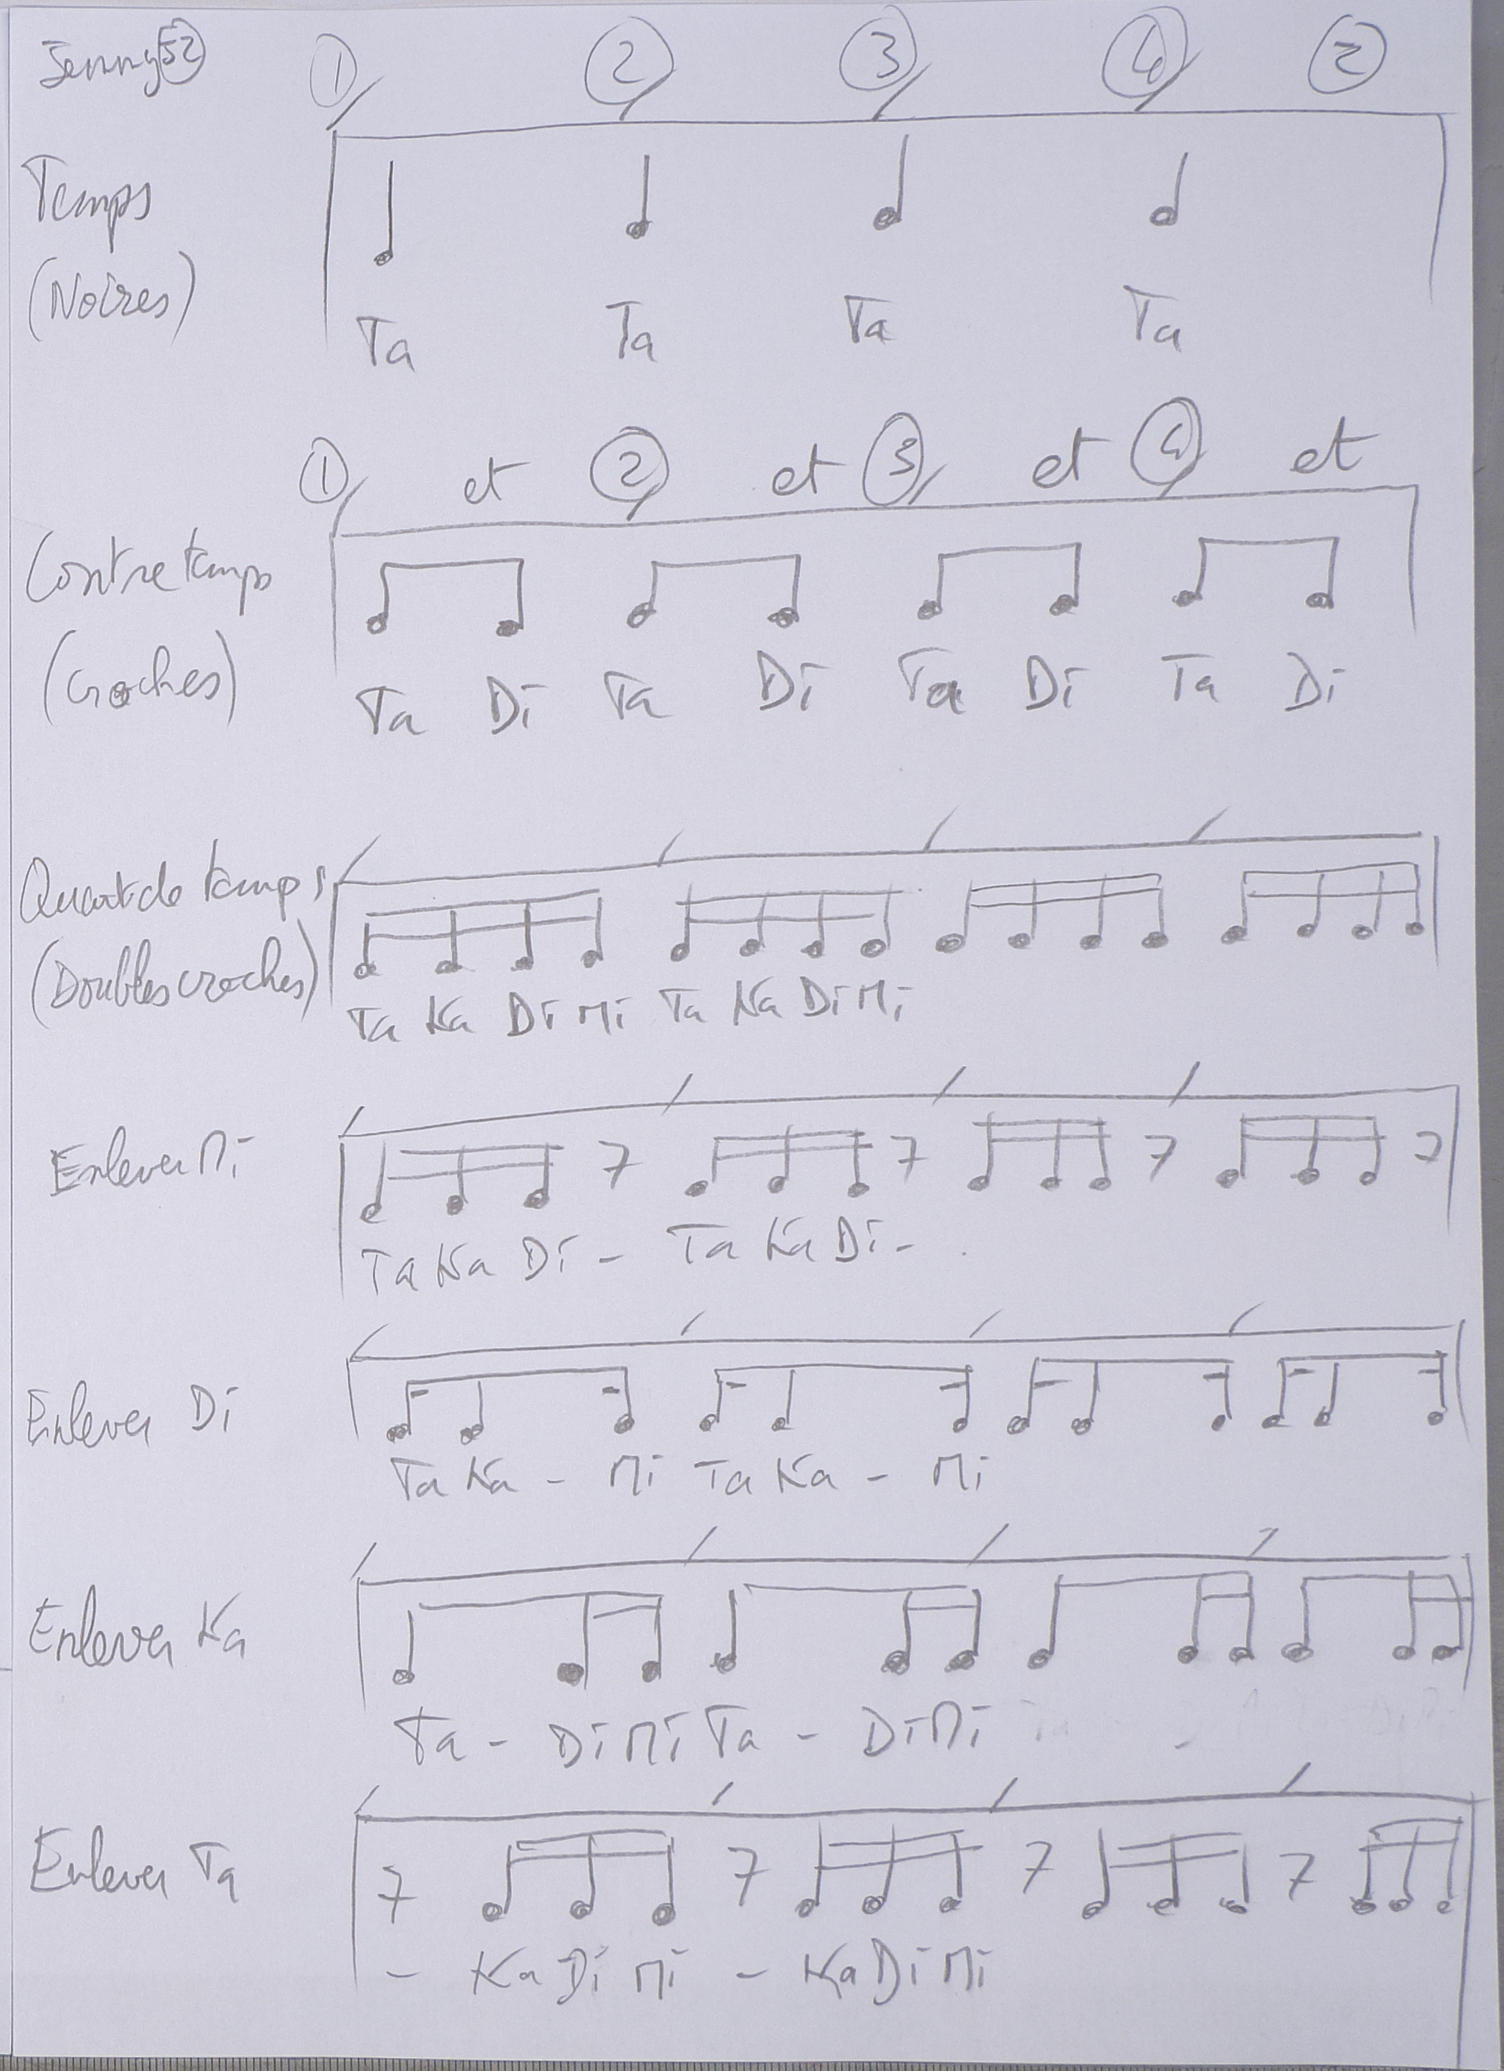 Jenny 52 1 2 3 4 2
Temps
(Noires)
Ta Ta Ta Ta
1 et 2 et 3 et 4 et
Contretemps
(Croches)
Ta Di Ta Di Ta Di Ta Di
Quart de temps
(Doubles croches)
Ta Ka Di Mi Ta Ka Di Mi
Enlever Mi
Ta Ka Di - Ta Ka Di -
Enlever Di
Ta Ka - Mi Ta Ka - Mi
Enlever Ka
Ta - Di Mi Ta - Di Mi
Enlever Ta
- Ka Di Mi - Ka Di Mi